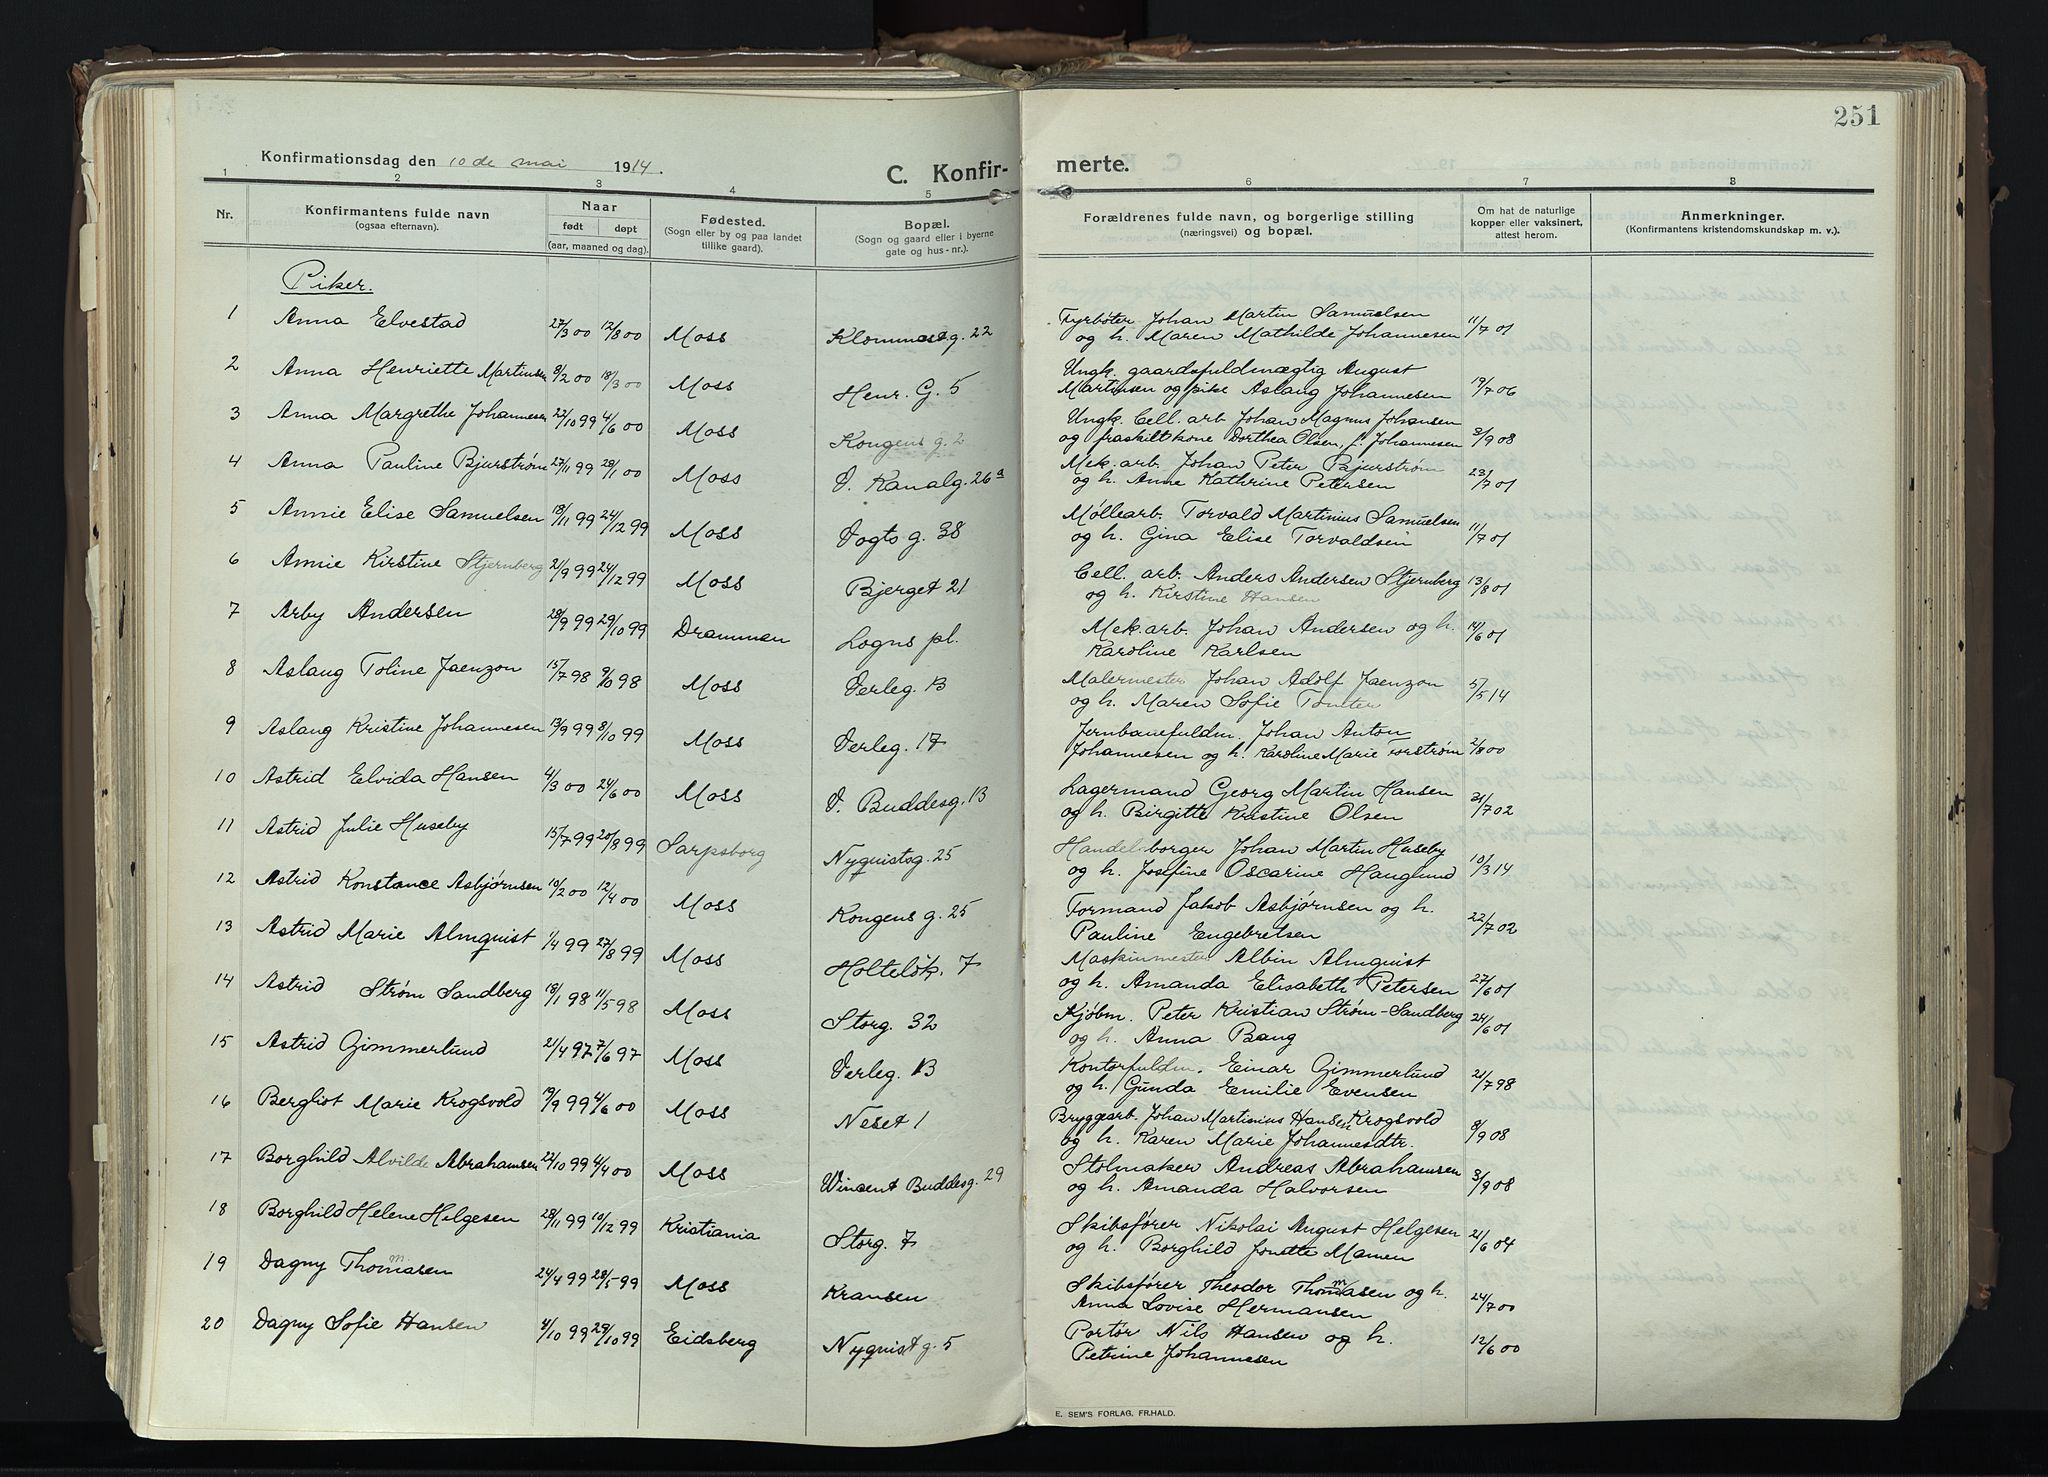 251
Konfirmationsdag den 10de mai 1914.
C. Konfir-
merte.
1 2 3 4 5 6 7 8
Nr.
Konfirmantens fulde navn
(ogsaa efternavn).
Naar
født døpt
(aar, maaned og dag).
Fødested.
(Sogn eller by og paa landet
tillike gaard).
Bopæl.
(Sogn og gaard eller i byerne
gate og hus-nr.).
Forældrenes fulde navn, og borgerlige stilling
(næringsvei) og bopæl.
Om hat de naturlige
kopper eller vaksinert,
attest herom.
Anmerkninger.
(Konfirmantens kristendomskundskap m. v.).
Piker.
1 Anna Elvestad 27/3 00 12/8 00 Moss Klommest g. 22
Fyrbøter Johan Martin Samuelsen
og h. Maren Mathilde Johannesen 11/7 01
2 Anna Henriette Martinsen 9/2 00 18/3 00 Moss Henr. G. 5
Ungk. gaardsfuldmægtig August
Martinsen og pike Aslaug Johannesen 19/7 06
3 Anna Margrethe Johannesen 22/10 99 4/6 00 Moss Kongens g. 2
Ungk. Cell. arb. Johan Magnus Johansen
og fraskilt kone Dorthea Olsen, f. Johannesen 3/9 08
4 Anna Pauline Bjurstrøm 27/11 99 28/1 00 Moss V. Kanalg. 26a
Mek. arb. Johan Peter Bjurstrøm
og h. Anne Kathrine Petersen 23/7 01
5 Annie Elise Samuelsen 18/11 99 24/12 99 Moss Vogts g. 38
Møllearb. Torvald Martinius Samuelsen
og h. Gina Elise Torvaldsen 11/7 01
6 Annie Kirstine Stjernberg 21/9 99 24/12 99 Moss Bjerget 21
Cell. arb. Anders Andersen Stjernberg
og h. Kirstine Hansen 13/8 01
7 Arby Andersen 28/9 99 29/10 99 Drammen Logns pl.
Mek. arb. Johan Andersen og h.
Karoline Karlsen 14/6 01
8 Aslaug Toline Jaenzon 15/7 98 9/10 98 Moss Verleg. 13
Malermester Johan Adolf Jaenzon
og h. Maren Sofie Tomter 5/5 14
9 Aslaug Kristine Johannesen 13/9 99 8/10 99 Moss Verleg. 17
Jernbanefuldm. Johan Anton
Johannesen og h. Karoline Marie Forstrøm 2/8 00
10 Astrid Elvida Hansen 4/3 00 24/6 00 Moss V. Buddesg. 13
Lagermand Georg Martin Hansen
og h. Birgitte Kristine Olsen 31/7 02
11 Astrid Julie Huseby 15/7 99 20/8 99 Sarpsborg Nyquistsg. 25
Handelsborger Johan Martin Huseby
og h. Josefine Oscarine Hauglund 10/3 14
12 Astrid Konstance Asbjørnsen 10/2 00 12/4 00 Moss Kongens g. 25
Formand Jakob Asbjørnsen og h.
Pauline Engebretsen 22/7 02
13 Astrid Marie Almquist 1/4 99 27/8 99 Moss Holteløk. 7
Maskinmester Albin Almquist
og h. Amanda Elisabeth Petersen 27/6 01
14 Astrid Strøm Sandberg 18/1 98 11/5 98 Moss Storg. 32
Kjøbm. Peter Kristian Strøm-Sandberg
og h. Anna Bang 24/6 01
15 Astrid Gimmerlund 21/4 97 7/6 97 Moss Verleg. 13
Kontorfuldm. Einar Gimmerlund
og h. Gunda Emilie Evensen 21/7 98
16 Bergliot Marie Krogsvold 19/9 99 4/6 00 Moss Neset 1
Bryggearb. Johan Martinius Hansen Krogsvold
og h. Karen Marie Johannesdtr. 8/9 08
17 Borghild Alvilde Abrahamsen 22/10 99 4/4 00 Moss Wincent Buddesg. 29
Stolmaker Andreas Abrahamsen
og h. Amanda Halvorsen 3/9 08
18 Borghild Helene Helgesen 28/11 99 10/12 99 Kristiania Storg. 7
Skibsfører Nikolai August Helgesen
og h. Borghild Jonette Mamen 21/6 04
19 Dagny Thommasen 24/4 99 28/5 99 Moss Kransen
Skibsfører Theodor Thommasen og h.
Anna Lovise Hermansen 24/7 00
20 Dagny Sofie Hansen 4/10 99 29/10 99 Eidsberg Nyquist g. 5
Portør Nils Hansen og h.
Petrine Johannesen 12/6 00
E. SEM'S FORLAG, FR.HALD.